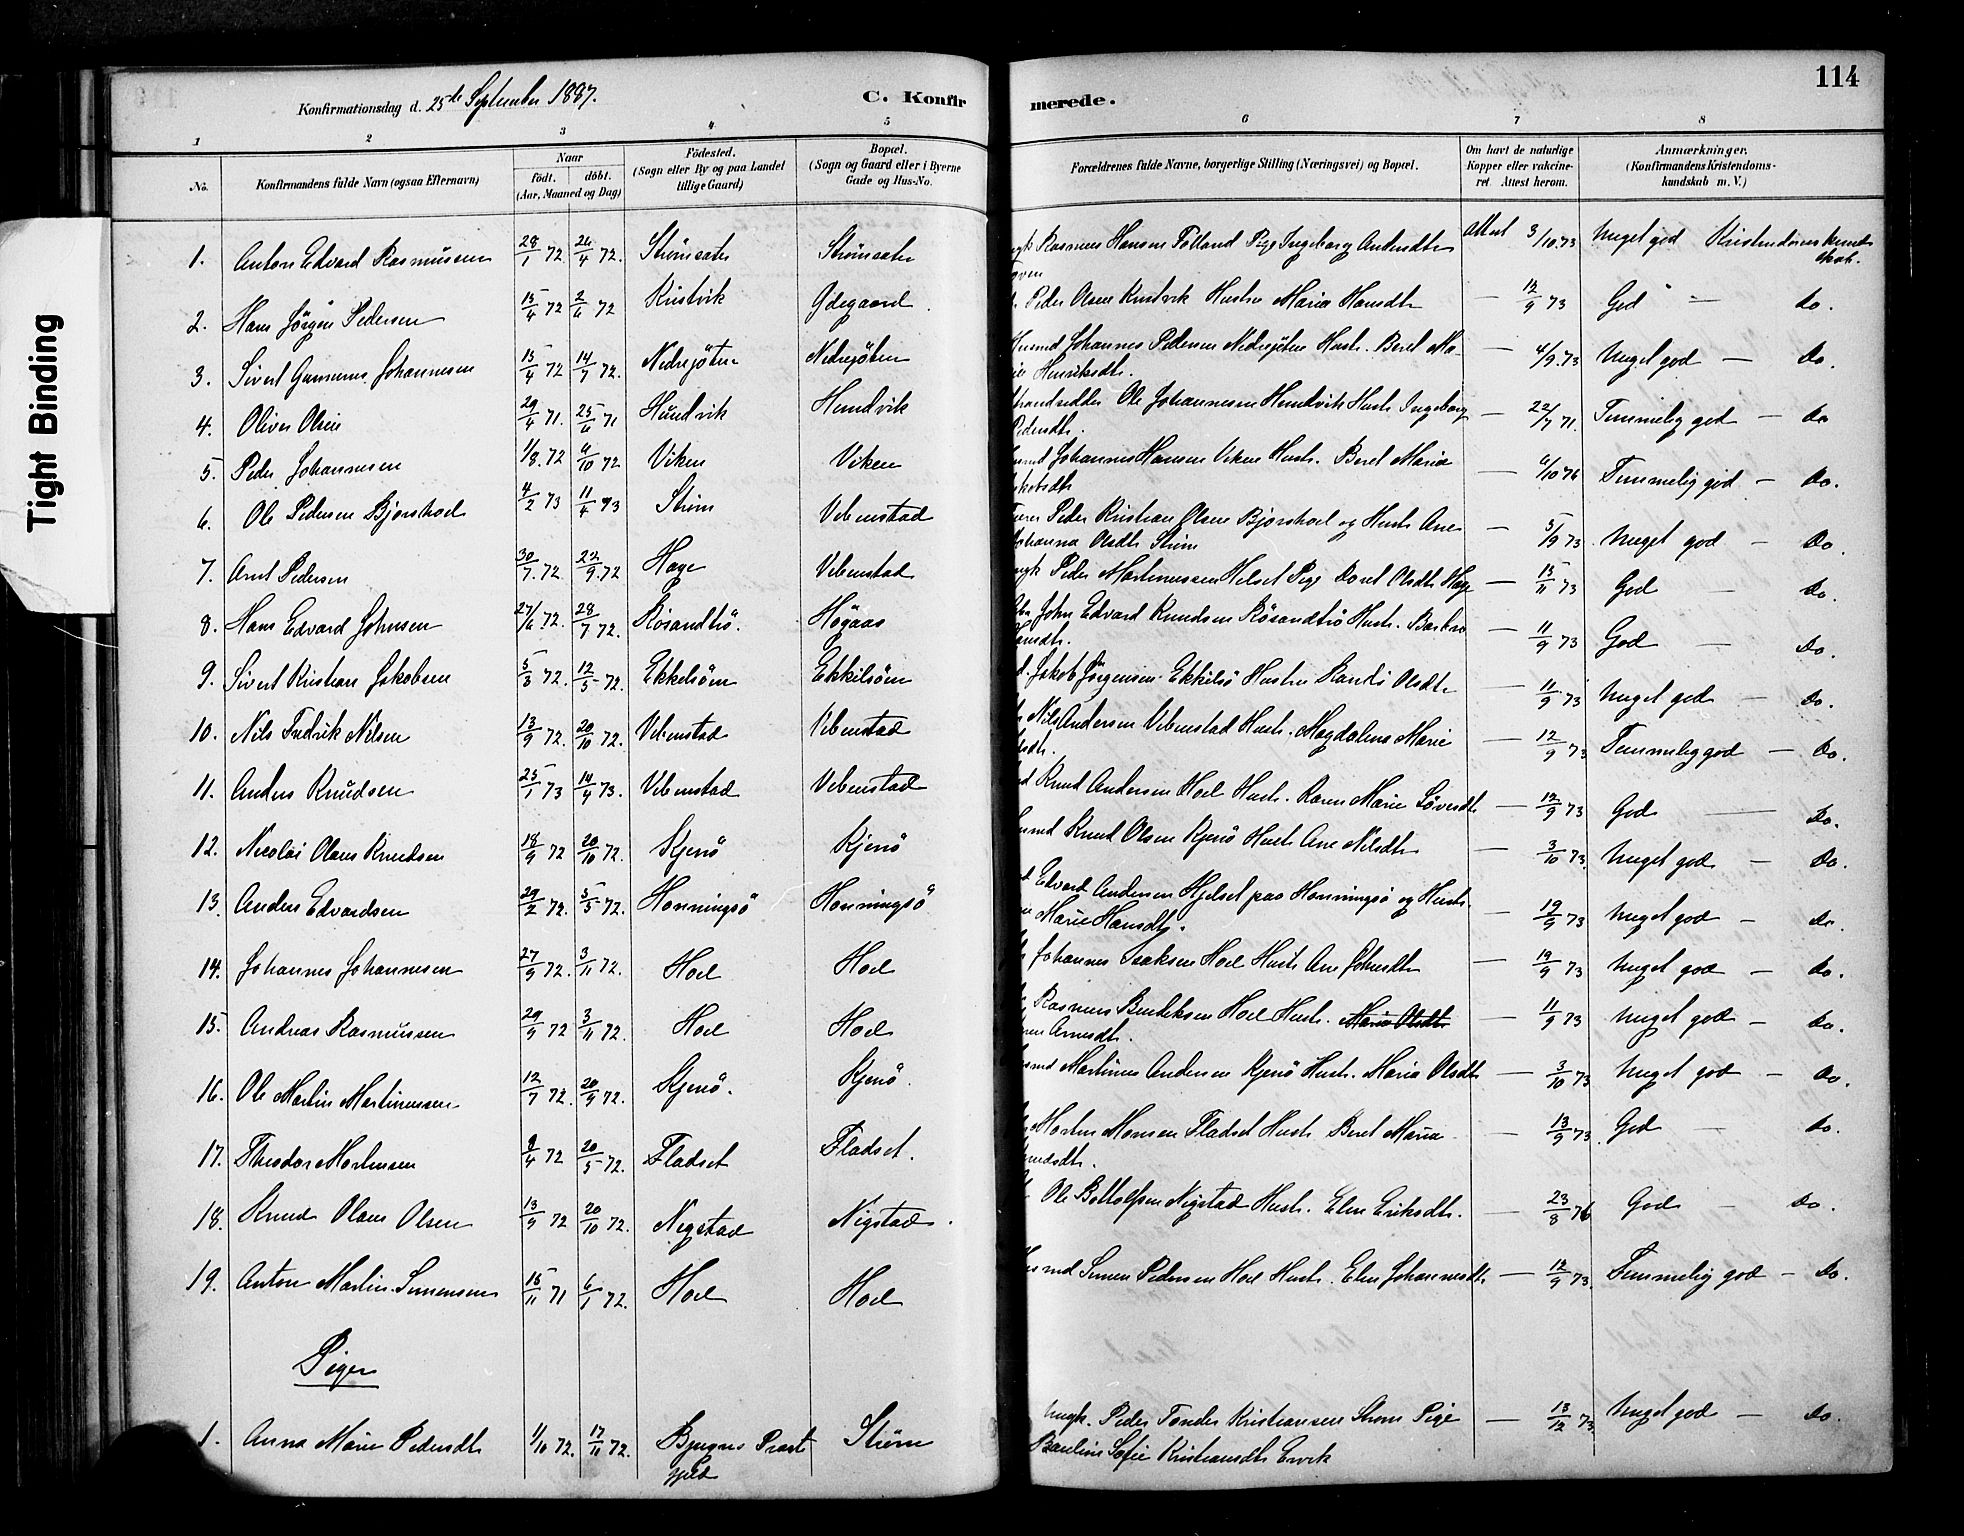 Tight Binding
114
Konfirmationsdag d. 25de September 1887.
C. Konfir
merede.
1 2 3 4 5 6 7 8
No.
Konfirmandens fulde Navn (ogsaa Efternavn)
Naar
födt. döbt.
(Aar, Maaned og Dag)
Födested.
(Sogn eller By og paa Landet
tillige Gaard)
Bopæl.
(Sogn og Gaard eller i Byerne
Gade og Hus-No.
Forældrenes fulde Navne, borgerlige Stilling (Næringsvei) og Bopæl.
Om havt de naturlige
Kopper eller vakcine-
ret. Attest herom.
Anmærkninger.
(Konfirmandens Kristendoms-
kundskab m. V.)
1. Anton Edvard Rasmussen 28/1 72. 24/4 72. Strømsæter Strømsæter Rasmus Hansen Folland Pige Ingeborg Andersdtr Attest 3/10.73 Meget god Kristendomskund
skab.
2. Hans Jörgen Pedersen 15/4 72 2/6 72 Kristvik Ödegaard Peder Olsen Kristvik Hustru Maria Hansdtr — 12/9 73 God — Do.
3. Sivert Gunerius Johannesen 15/4 72 14/7 72. Nedrejöten Nedrejöten Johannes Pedersen Nedrejöten Hustr. Beret Ma-
rie Henriksdtr. — 4/9.73 Meget god — Do.
4. Oliver Olsen 29/4 71. 25/6 71 Hundvik Hundvik Ole Johannesen Hundvik Hustr Ingeborg
Pedersdtr. — 22/7 71. Temmelig god — Do
5. Peder Johannesen 1/8.72 4/10 72 Viken Viken Johannes Hansen Viken Hustr. Beret Maria
— 6/10 76 Temmelig god — Do.
6. Ole Pedersen Bjørshoel 4/2 73 11/4 73 Strøm Vebenstad Peder Kristian Olsen Bjorshoel og Hustr Ane
Johanna Olsdtr Strøm — 5/9 73 Meget god — Do.
7. Arnt Pedersen 30/7.72 22/9.72 Hage Vebenstad Peder Martinussen Helset Pige Doret Olsdtr Hage — 15/11 73 God — Do.
8. Hans Edvard Johnsen 27/6.72. 28/7 72. Røsandtrö. Högaas John Edvard Knudsen Rösandtrö Hustr. Barbro
— 11/9 73 God — Do.
9. Sivert Kristian Jakobsen 5/3 72. 12/5 72. Ekkelsöen Ekkilsöen Jakob Jörgensen Ekkilsö Hustru Randi Olsdtr — 11/9 73 Meget god — Do.
10. Nils Fredrik Nilsen 13/9 72. 20/10 72. Vebenstad Vebenstad Nils Andersen Vebenstad Hustr. Magdalena Marie
— 12/9 73 Temmelig god — Do.
11. Anders Knudsen 25/1 73 14/4 73. Vebenstad Vebenstad Knud Andersen Hoel Hustr. Karen Marie Söversdtr — 12/9 73 God — Do.
12. Nicolai Olaus Knudsen 18/9 72 20/10 72. Kjenö Kjenö Knud Olsen Kjenö Hustr Ane Nilsdtr — 3/10 73. Meget god — Do.
13. Anders Edvardsen 29/2 72. 5/5 72. Honningsö Honningsö Edvard Andersen Hjelset paa Honningsö og Hustr.
Marie Hansdtr. — 19/9 73 Meget god — Do.
14. Johannes Johannesen 27/9 72. 3/11 72. Hoel Hoel Johannes Isaksen Hoel Hustr Ane Johnsdtr — 19/9 73 Meget god — Do.
15. Andreas Rasmussen 29/9 72 3/11 72. Hoel Hoel Rasmus Bendiksen Hoel Hustr. Maria Olsdtr
Arnesdtr. — 11/9 73 Meget god — Do.
16. Ole Martin Martinussen 12/7 72. 20/9 72. Kjenö. Kjenö. Martinus Andersen Kjenö Hustr. Maria Olsdtr — 3/10 73 Meget god — Do.
17. Theodor Mortensen 9/4 72 20/5 72. Fladset Fladset. Morten Monsen Fladset Hustr. Beret Maria
— 13/9 73. God — Do.
18. Knud Olaus Olsen 13/9 72 20/10 72. Nigstad Nigstad. Ole Bottolfsen Nigstad Hustr. Elen Eriksdtr. — 23/8 76 God — Do.
19. Anton Martin Simensen 15/11 71 6/1 72. Hoel Hoel Simen Pedersen Hoel Hustr. Elen Johannesdtr — 12/9 73. Temmelig god — Do.
Piger
1. Anna Marie Pedersdtr 1/10 72. 17/11 72. Bjugns Præst
gjeld Strøm Ungk. Peder Tonder Kristiansen Strøm Pige
Pauline Sofie Kristiansdtr Ervik — 13/12 73 Meget god — Do.